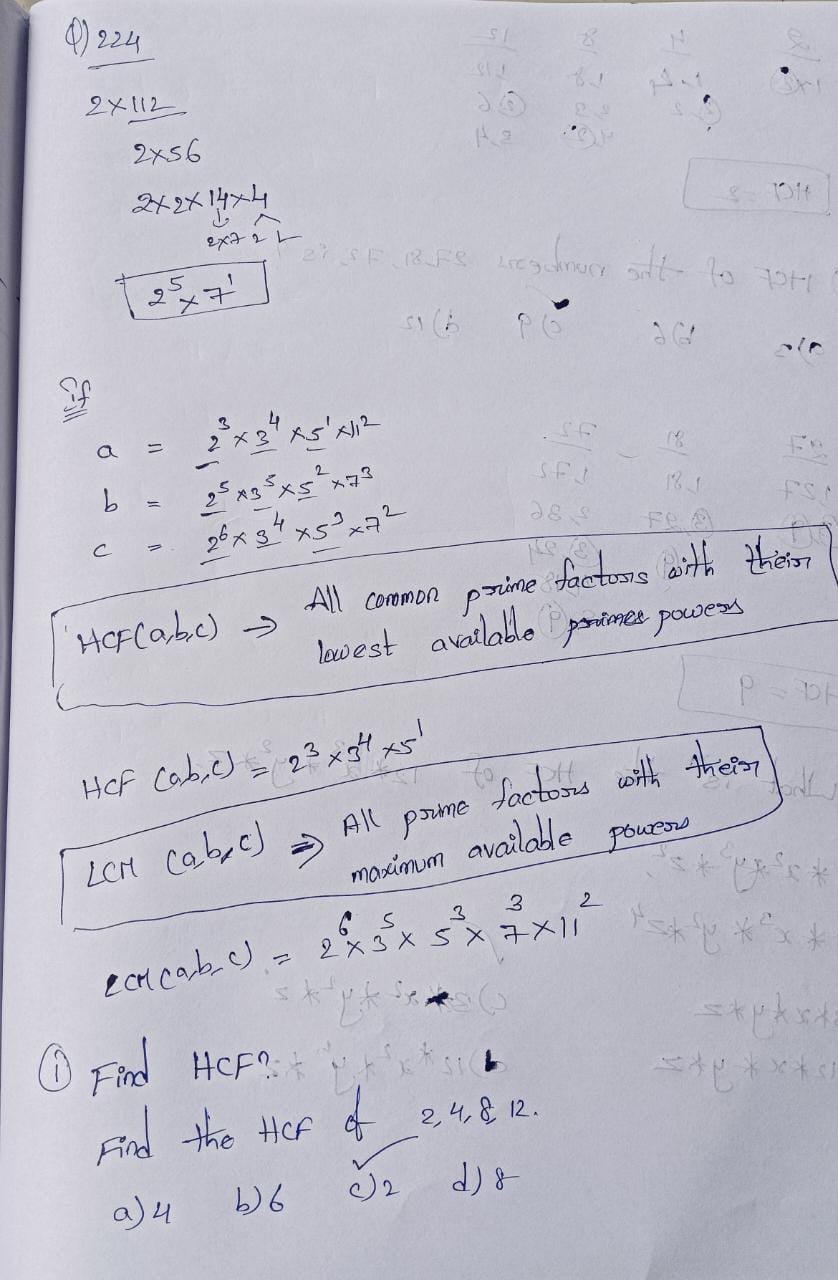 Q) 224
2×112
2×56
2×2×14×4
2×7 2 2
2⁵×7¹
If
a = 2³×3⁴×5¹×11²
b = 2⁵×3⁵×5²×7³
c = 2⁶×3⁴×5³×7²
HCF(a,b,c) → All common prime factors with their
lowest available powers
HCF (a,b,c) = 2³×3⁴×5¹
LCM (a,b,c) ⇒ All prime factors with their
maximum available powers
LCM(a,b,c) = 2⁶×3⁵×5³×7³×11²
① Find HCF?
Find the HCF of 2,4,8, 12.
a) 4 b) 6 c) 2 d) 8